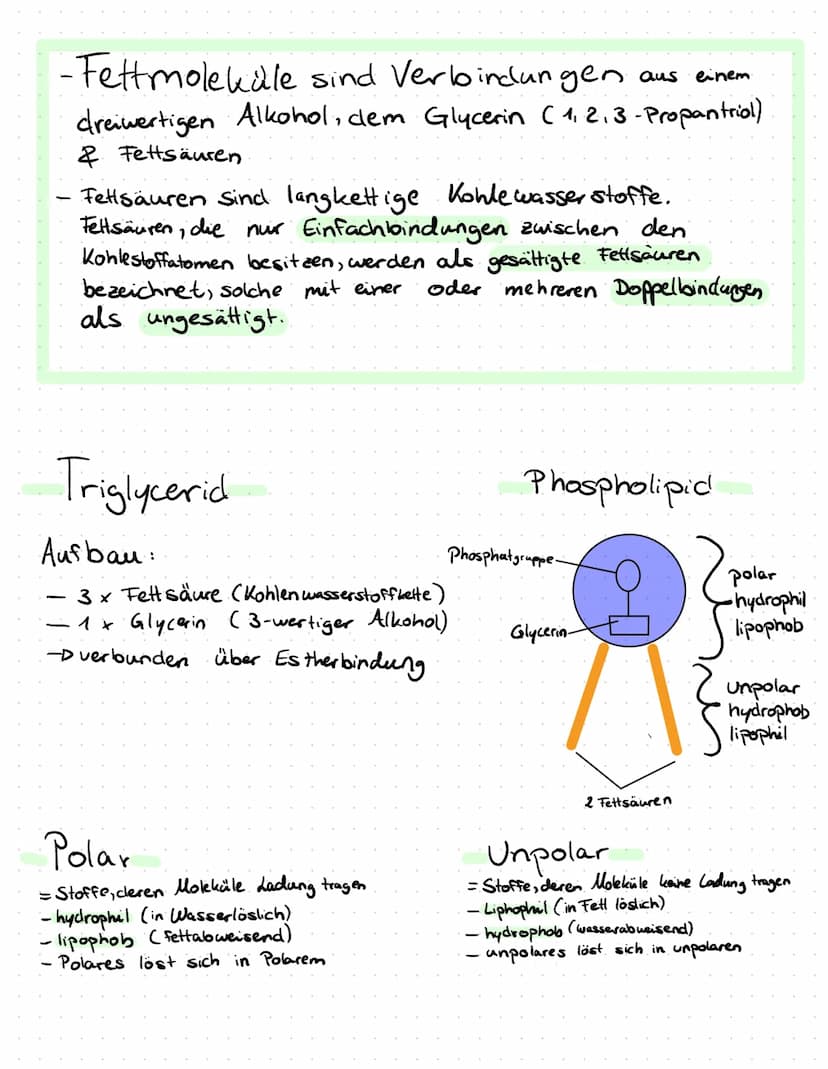 - Fettmoleküle sind Verbindungen aus einem
dreiwertigen Alkohol, dem Glycerin (1,2,3-Propantriol)
& Fettsäuren
- Fettsäuren sind langkettige Kohlewasserstoffe.
Fettsäuren, die nur Einfachbindungen zwischen den
Kohlestoffatomen besitzen, werden als gesättigte Fettsäuren
bezeichnet, solche mit einer oder mehreren Doppelbindungen
als ungesättigt.
Triglycerid
Aufbau:
- 3x Fettsäure (Kohlenwasserstoffkette)
- 1x Glycerin (3-wertiger Alkohol)
→ verbunden über Estherbindung
Phospholipid
Phosphatgruppe
Glycerin
polar
hydrophil
lipophob
unpolar
hydrophob
lipophil
2 Fettsäuren
Polar
= Stoffe, deren Moleküle Ladung tragen
- hydrophil (in Wasserlöslich)
- lipophob (fettabweisend)
- Polares löst sich in Polarem
Unpolar
= Stoffe, deren Moleküle keine Ladung tragen
- Liphophil (in Fett löslich)
- hydrophob (wasserabweisend)
- unpolares löst sich in unpolaren